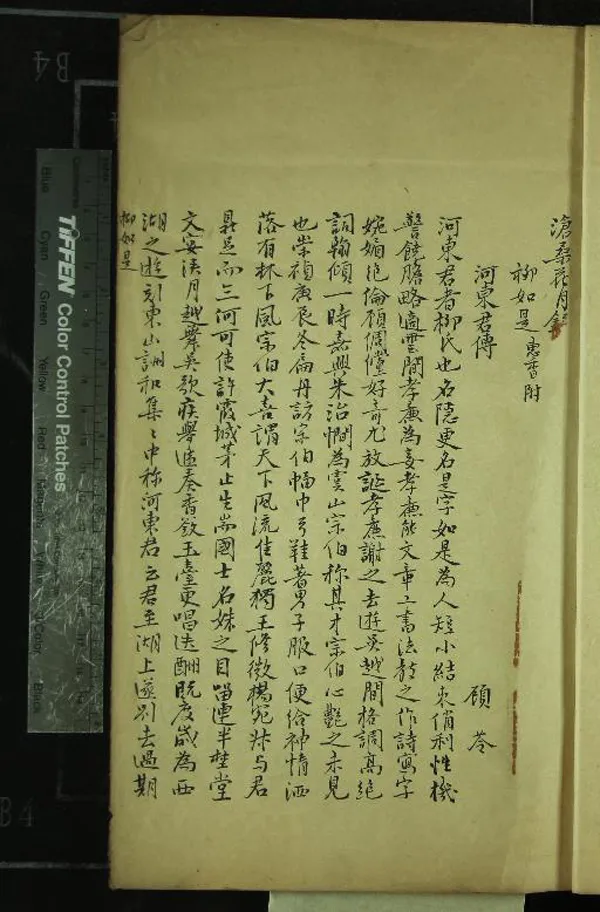 滄桑花月錄
柳如是 惠香附
河東君傳
顧苓
河東君者柳氏也名隱更名是字如是為人短小結束俏利性機
警饒膽略適雲間孝廉為妾孝廉能文章工書法教之作詩寫字
婉媚絕倫顧倜儻好奇尤放誕孝廉謝之去遊吳越間格調高絕
詞翰傾一時嘉興朱治憪為虞山宗伯稱其才宗伯心艷之未見
也崇禎庚辰冬扁舟訪宗伯幅巾弓鞋著男子服口便給神情洒
落有林下風宗伯大喜謂天下風流佳麗獨王修微楊宛叔与君
鼎足而三何可使許霞城茅止生耑國士名姝之目留連半埜堂
文宴浹月越舞吳歌疾舉遞奏香奩玉臺更唱迭酬既度歲為西
湖之遊刻東山詶和集〻中称河東君云君至湖上遂別去過期
柳如是
B4
B4
TIFFEN Color Control Patches
Blue
Cyan
Green
Yellow
Red
Black